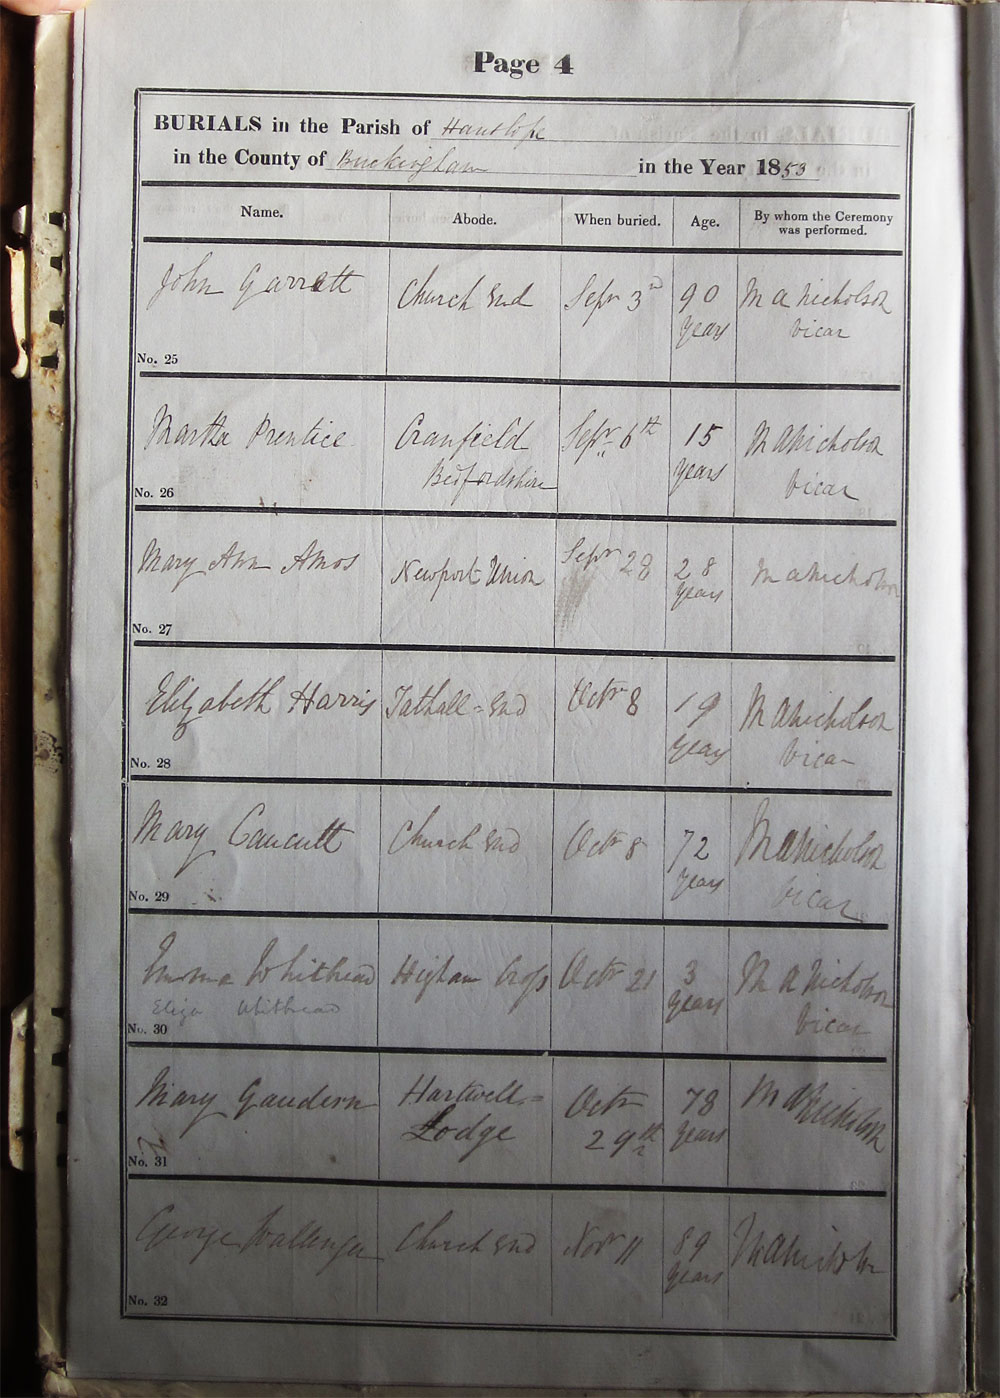 Page 4
BURIALS in the Parish of Hanslope
in the County of Buckingham in the Year 1853
Name. Abode. When buried. Age. By whom the Ceremony
was performed.
John Garratt Church End Sepr 3rd 90 M A Nicholson
years Vicar
No. 25
Martha Prentice Cranfield Sepr 6th 15 M A Nicholson
Bedfordshire years Vicar
No. 26
Mary Ann Amos Newport Union Sepr 28 28 M A Nicholson
years
No. 27
Elizabeth Harris Tathall-End Octr 8 19 M A Nicholson
years Vicar
No. 28
Mary Caucutt Church End Octr 8 72 M A Nicholson
years Vicar
No. 29
Emma Whithead Higham Cross Octr 21 3 M A Nicholson
Eliza Whithead years Vicar
No. 30
Mary Gaudern Hartwell- Octr 78 M A Nicholson
Lodge 29th years
No. 31
George Church End Novr 11 89 M A Nicholson
years
No. 32